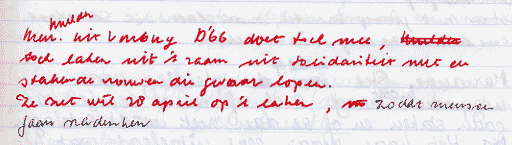 Mulder
uit Limburg D'66 doet toch mee,
toch laken uit 't raam uit solidariteit met
stakende vrouwen die gevaar lopen.
Ze zet wil 28 april op 't laken, zodat mensen
gaan nadenken